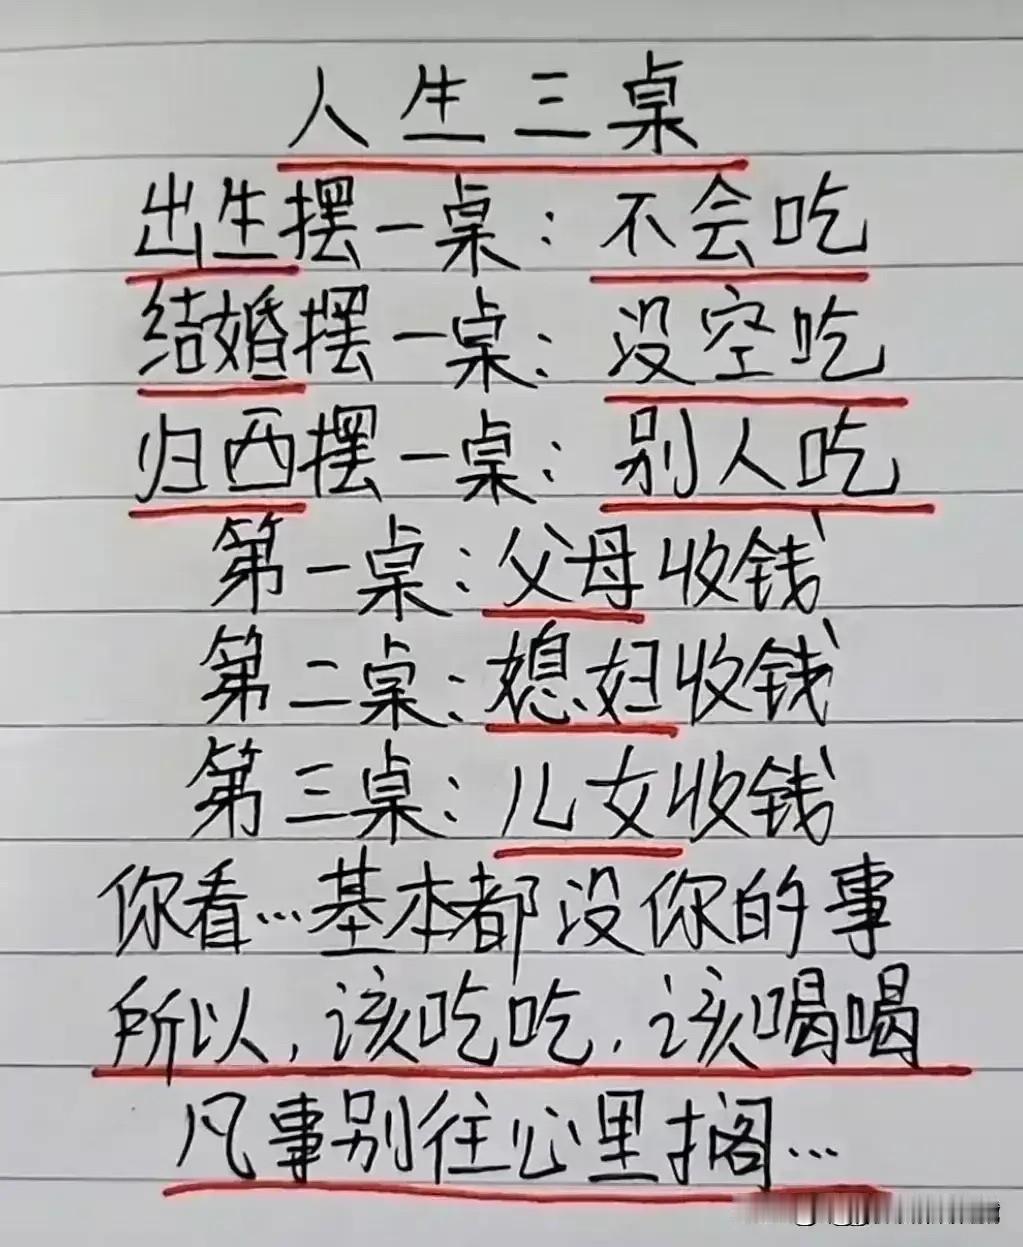 人生三桌
出生摆一桌：不会吃
结婚摆一桌：没空吃
归西摆一桌：别人吃
第一桌：父母收钱
第二桌：媳妇收钱
第三桌：儿女收钱
你看…基本都没你的事
所以，该吃吃，该喝喝
凡事别往心里搁…